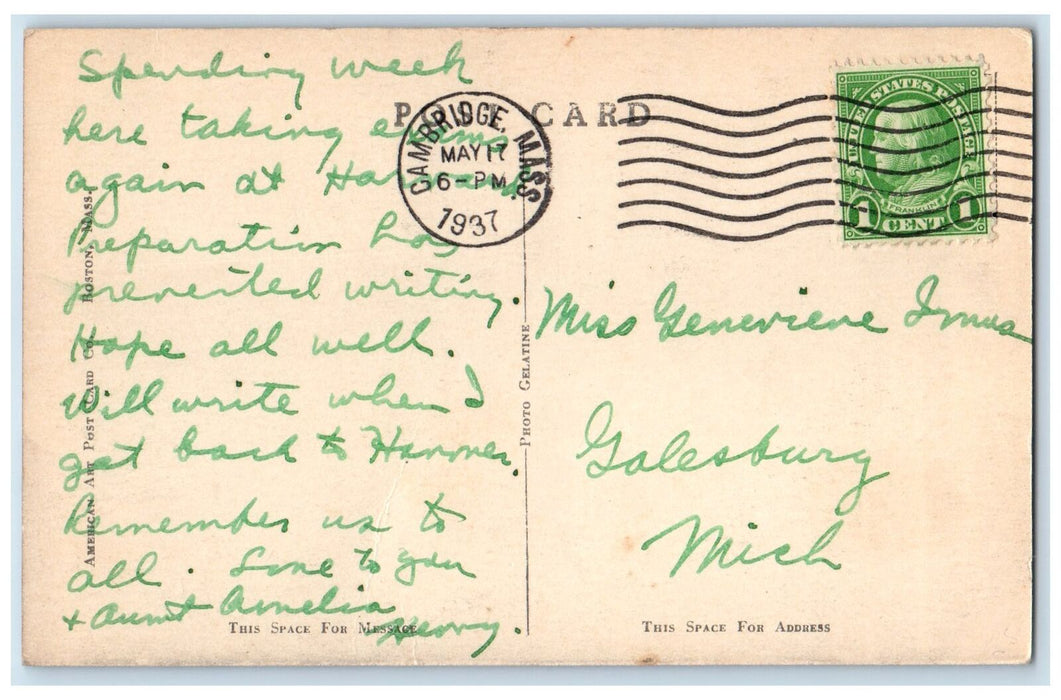 Spending week
here taking exams
again at Harvard
Preparation has
prevented writing.
Hope all well.
Will write when I
get back to Hanover.
Remember us to
all. Love to you
+ Aunt Amelia
Henry.
POST CARD
CAMBRIDGE, MASS.
MAY 17
6-PM
1937
UNITED STATES POSTAGE
FRANKLIN
1 CENT 1
Miss Genevieve
Galesburg
Mich
AMERICAN ART POST CARD CO., BOSTON, MASS.
PHOTO GELATINE
THIS SPACE FOR MESSAGE
THIS SPACE FOR ADDRESS